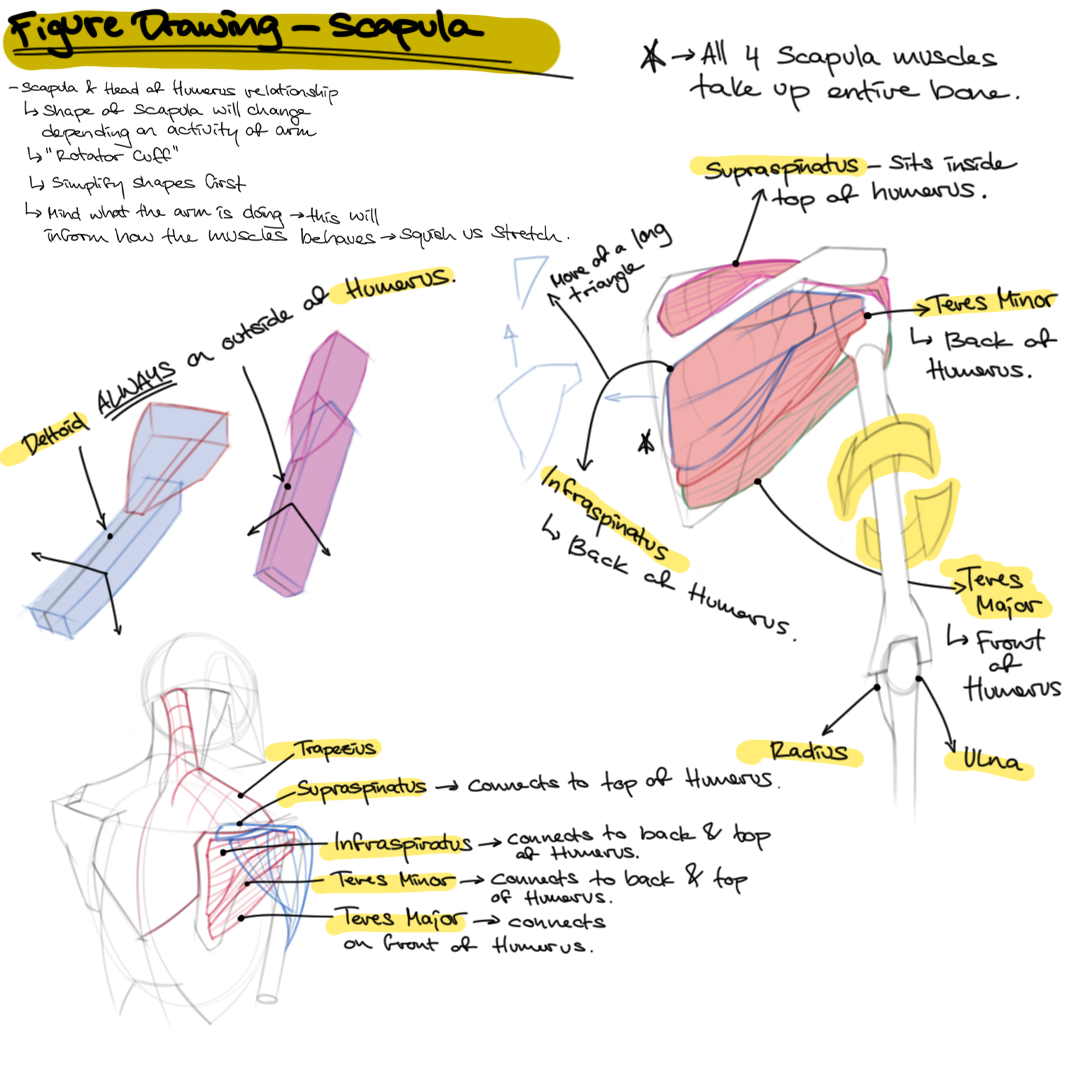 Figure Drawing - Scapula
- Scapula & Head of Humerus relationship
↳ Shape of Scapula will change
depending on activity of arm
↳ "Rotator Cuff"
↳ Simplify shapes first
↳ Mind what the arm is doing → this will
inform how the muscles behaves → squish vs stretch.
* → All 4 Scapula muscles
take up entire bone.
Supraspinatus - Sits inside
top of humerus.
More of a long
triangle
Teres Minor
↳ Back of
Humerus.
Deltoid ALWAYS on outside of Humerus.
*
Infraspinatus
↳ Back of Humerus.
Teres
Major
↳ Front
of
Humerus
Radius
Ulna
Trapezius
Supraspinatus → connects to top of Humerus.
Infraspinatus → connects to back & top
of Humerus.
Teres Minor → connects to back & top
of Humerus.
Teres Major → connects
on front of Humerus.